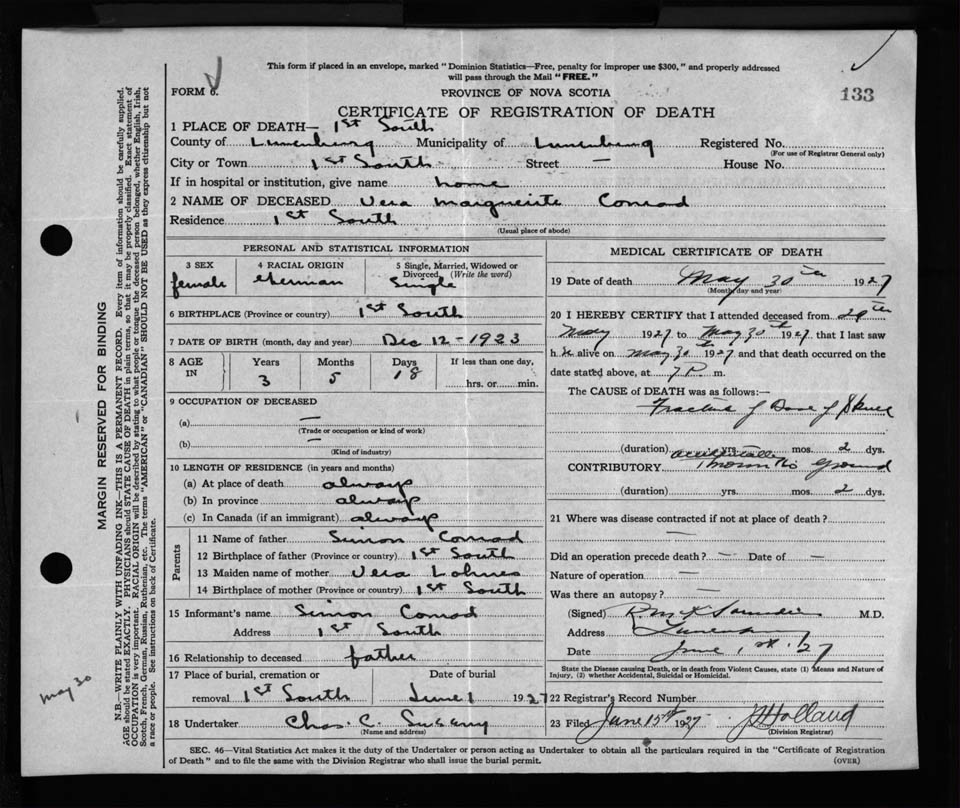 This form if placed in an envelope, marked "Dominion Statistics—Free, penalty for improper use $300," and properly addressed
will pass through the Mail "FREE."
FORM 6.
PROVINCE OF NOVA SCOTIA
133
CERTIFICATE OF REGISTRATION OF DEATH
1 PLACE OF DEATH— 1st South
County of Lunenburg Municipality of Lunenburg Registered No.
(For use of Registrar General only)
City or Town 1st South Street — House No.
If in hospital or institution, give name home
2 NAME OF DECEASED Vera Marguerite Conrad
Residence 1st South
(Usual place of abode)
PERSONAL AND STATISTICAL INFORMATION
3 SEX 4 RACIAL ORIGIN 5 Single, Married, Widowed or Divorced (Write the word)
female German Single
6 BIRTHPLACE (Province or country) 1st South
7 DATE OF BIRTH (month, day and year) Dec 12 - 1923
8 AGE IN Years Months Days If less than one day,
3 5 18 hrs. or min.
9 OCCUPATION OF DECEASED
(a) —
(Trade or occupation or kind of work)
(b) —
(Kind of industry)
10 LENGTH OF RESIDENCE (in years and months)
(a) At place of death always
(b) In province always
(c) In Canada (if an immigrant) always
Parents
11 Name of father Simon Conrad
12 Birthplace of father (Province or country) 1st South
13 Maiden name of mother Vera Lohnes
14 Birthplace of mother (Province or country) 1st South
15 Informant's name Simon Conrad
Address 1st South
16 Relationship to deceased father
17 Place of burial, cremation or removal 1st South Date of burial June 1 1927
18 Undertaker Chas. C.
(Name and address)
MEDICAL CERTIFICATE OF DEATH
19 Date of death May 30th 1927
(Month, day and year)
20 I HEREBY CERTIFY that I attended deceased from 29th
May 1927 to May 30th 1927 that I last saw
h alive on May 30th 1927 and that death occurred on the
date stated above, at 7 P. m.
The CAUSE of DEATH was as follows:—
Fracture of Base of Skull
(duration) yrs. mos. 2 dys.
accidentally
CONTRIBUTORY thrown to Ground
(duration) yrs. mos. 2 dys.
21 Where was disease contracted if not at place of death?
—
Did an operation precede death? — Date of —
Nature of operation —
Was there an autopsy? —
(Signed) Saunders M.D.
Address Lunenburg
Date June 1st. /27
State the Disease causing Death, or in death from Violent Causes, state (1) Means and Nature of
Injury, (2) whether Accidental, Suicidal or Homicidal.
22 Registrar's Record Number
23 Filed June 15th 1927 Holland
(Division Registrar)
SEC. 46—Vital Statistics Act makes it the duty of the Undertaker or person acting as Undertaker to obtain all the particulars required in the "Certificate of Registration
of Death" and to file the same with the Division Registrar who shall issue the burial permit.
(OVER)
MARGIN RESERVED FOR BINDING
N.B.—WRITE PLAINLY, WITH UNFADING INK—THIS IS A PERMANENT RECORD. Every item of information should be carefully supplied.
AGE should be stated EXACTLY. PHYSICIANS should STATE CAUSE OF DEATH in plain terms, so that it may be properly classified. Exact statement of
OCCUPATION is very important. RACIAL ORIGIN will be described by stating to what people or tongue the deceased person belonged, whether English, Irish,
Scotch, French, German, Russian, Ruthenian, etc. The terms "AMERICAN" or "CANADIAN" SHOULD NOT BE USED as they express citizenship but not
a race or people. See instructions on back of Certificate.
May 30